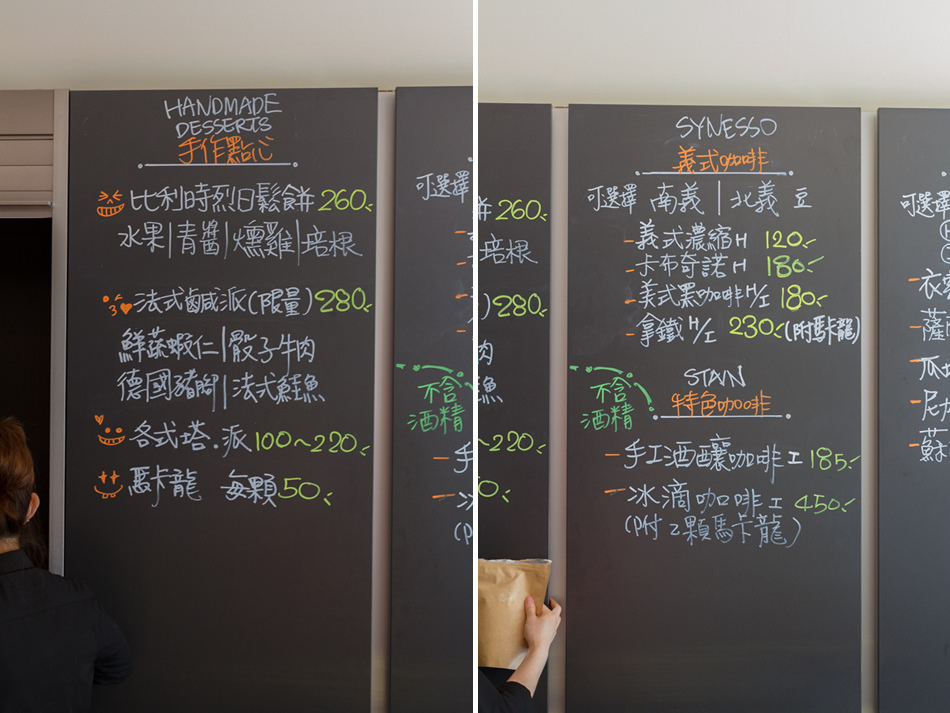 HANDMADE
DESSERTS
手作點心
比利時烈日鬆餅 260
水果|青醬|燻雞|培根
法式鹹派(限量) 280
鮮蔬蝦仁|骰子牛肉
德國豬腳|法式鮭魚
各式塔.派 100~220
馬卡龍 每顆50
可選擇
不含
酒精
餅 260
培根
) 280
肉
鮭魚
~220
SYNESSO
義式咖啡
可選擇 南義 | 北義 豆
-義式濃縮H 120
-卡布奇諾H 180
-美式黑咖啡H/I 180
-拿鐵H/I 230(附馬卡龍)
STAIN
特色咖啡
不含
酒精
-手工酒釀咖啡I 185
-冰滴咖啡I 450
(附2顆馬卡龍)
可選擇